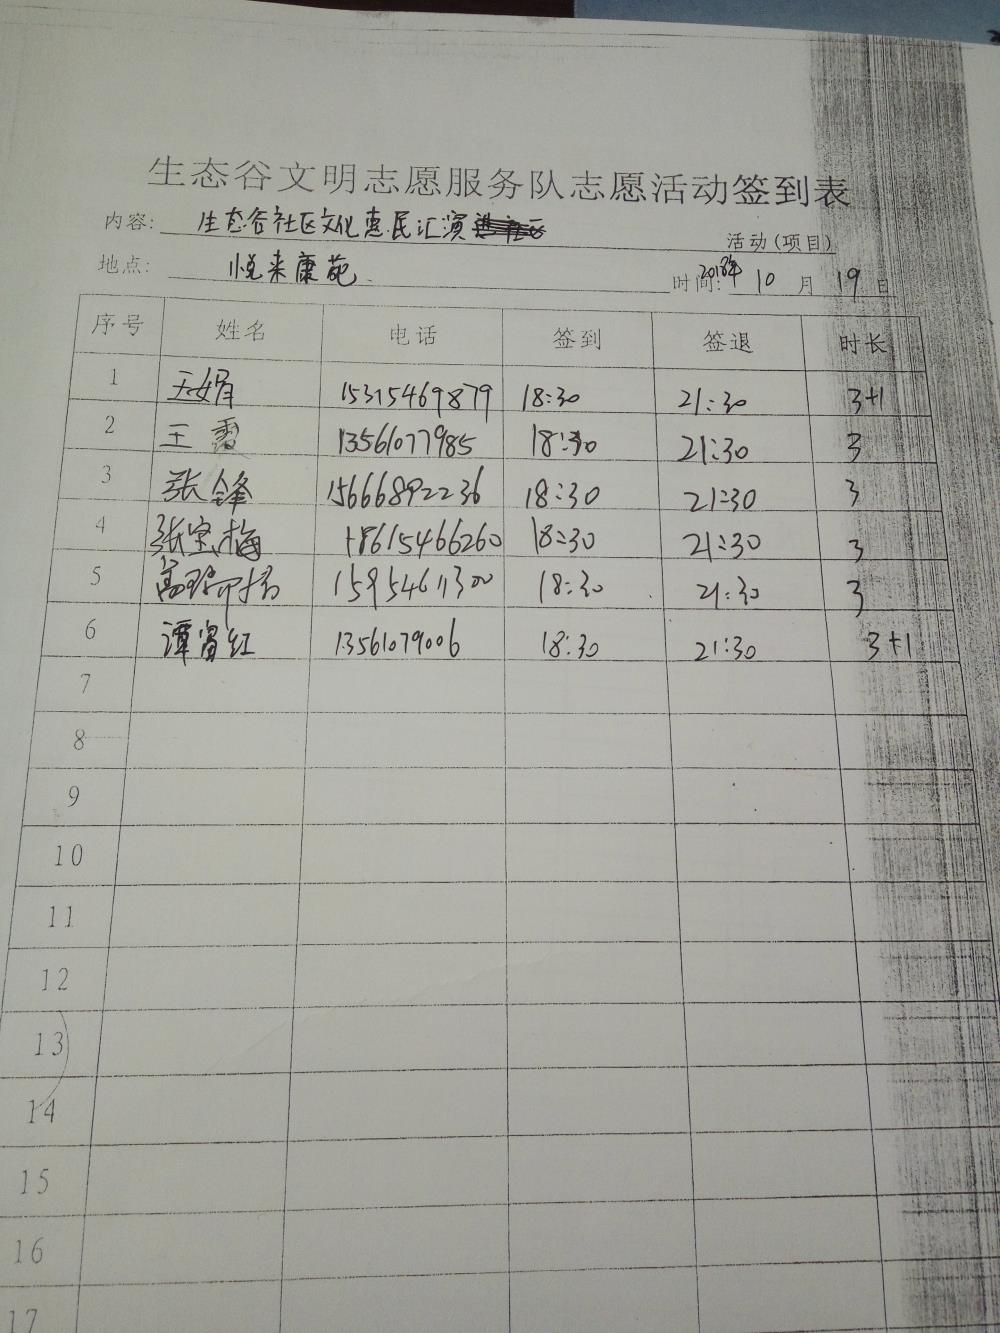 生态谷文明志愿服务队志愿活动签到表
内容: 生态谷社区文化惠民汇演 活动(项目)
地点: 悦来康苑 时间: 2018年 10 月 19 日
序号 姓名 电话 签到 签退 时长
1 王娟 15315469879 18:30 21:30 3+1
2 王霞 13561077985 18:30 21:30 3
3 张锋 15666892236 18:30 21:30 3
4 张宝梅 18615466260 18:30 21:30 3
5 高 15954611300 18:30 21:30 3
6 谭富红 13561079006 18:30 21:30 3+1
7
8
9
10
11
12
13
14
15
16
17